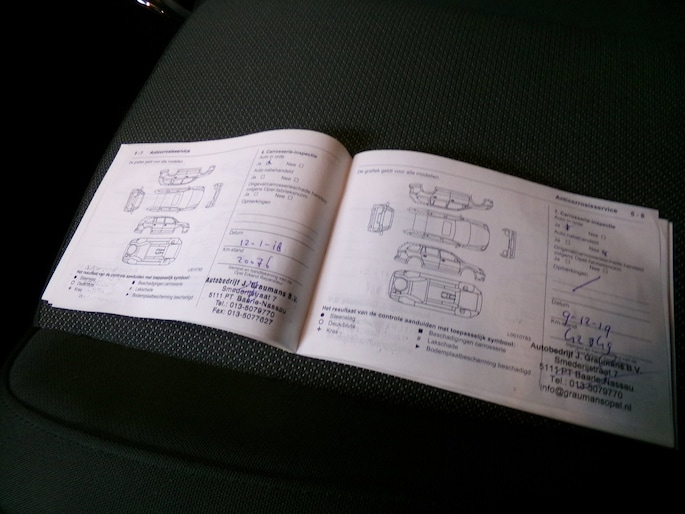 Anticorrosieservice
De grafiek geldt voor alle modellen.
4. Carrosserie-inspectie
Auto in orde
Ja Nee
Auto nabehandeld
Ja Nee
Ja Nee
Opmerkingen:
Datum
12-1-18
Km-stand
20076
Het resultaat van de controle aanduiden met toepasselijk symbool:
Steenslag
Deuk/bluts
Kras
Beschadigingen carrosserie
Lakschade
Bodemplaatbescherming beschadigd
Autobedrijf J. Graumans B.V.
Smederijstraat 7
5111 PT Baarle-Nassau
Tel.: 013-5079770
Fax: 013-5077627
Anticorrosieservice
De grafiek geldt voor alle modellen.
Carrosserie-inspectie
Auto in orde
Ja Nee
Auto nabehandeld
Ja Nee
Ja Nee
Opmerkingen:
Datum
9-12-19
Het resultaat van de controle aanduiden met toepasselijk symbool:
Steenslag
Deuk/bluts
Kras
Beschadigingen carrosserie
Lakschade
Bodemplaatbescherming beschadigd
Autobedrijf J. Graumans B.V.
Smederijstraat 7
5111 PT Baarle-Nassau
Tel.: 013-5079770
info@graumansopel.nl